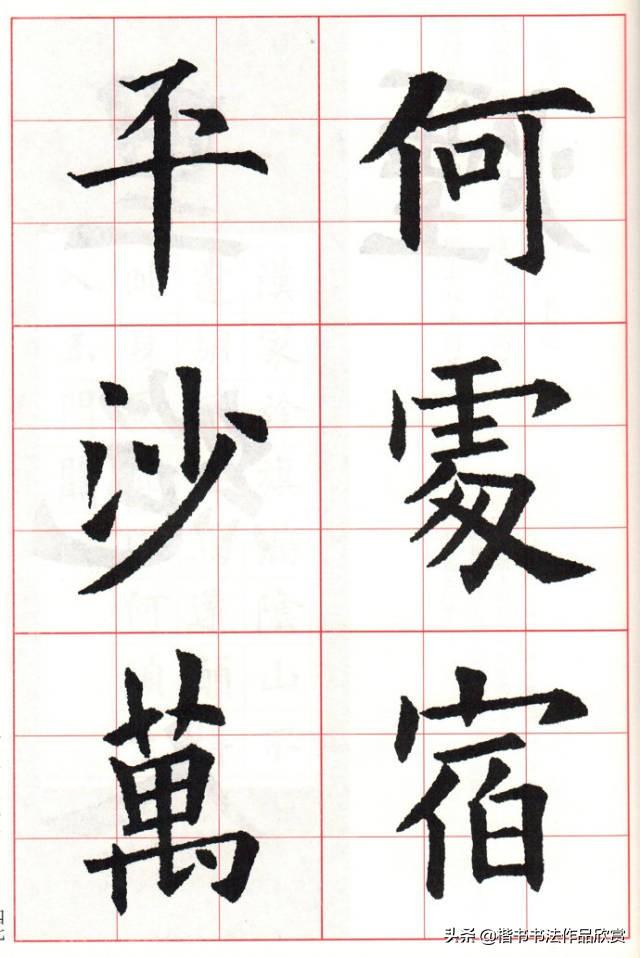 何處宿
平沙萬
头条 @楷书书法作品欣赏